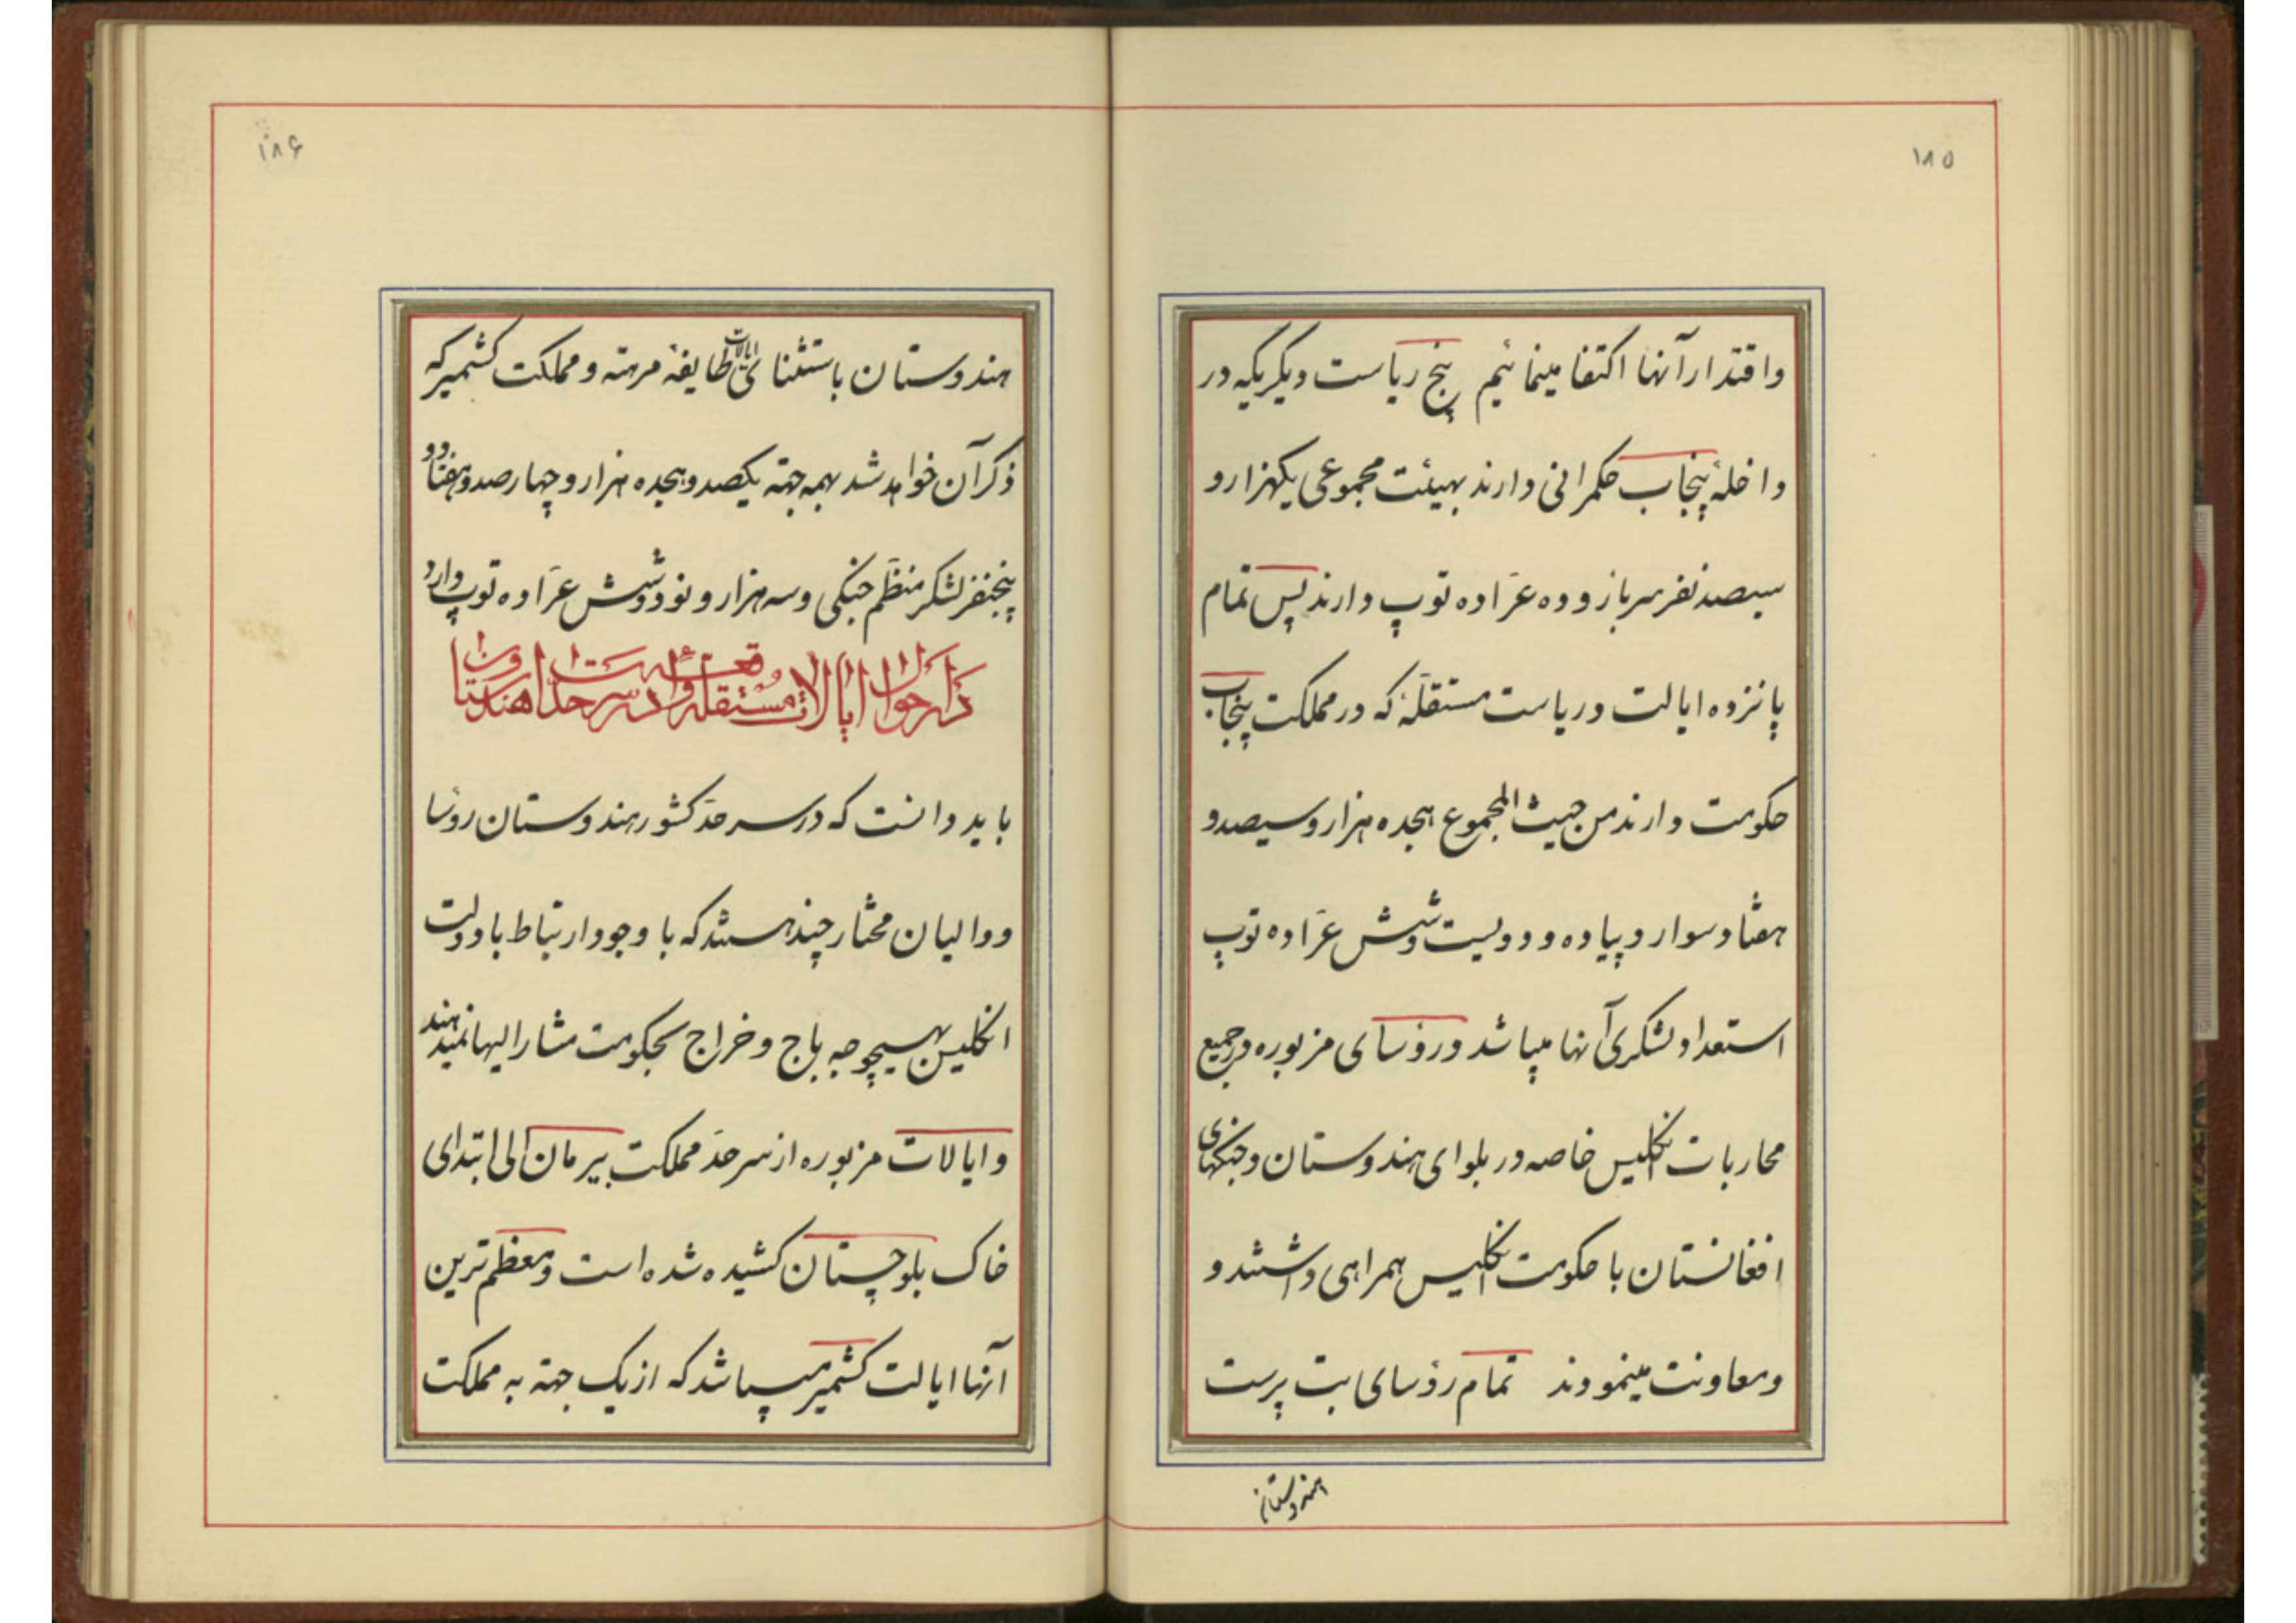 ۱۸۵
واقتدار آنها اکتفا مینمائیم پنج ریاست دیگر یکه در
داخلهٔ پنجاب حکمرانی دارند بهیئت مجموعی یکهزار و
سیصد نفر سرباز و ده عرّاده توپ دارند پس تمام
پانزده ایالت و ریاست مستقلّهٔ که در مملکت پنجاب
حکومت دارند من حیث المجموع هجده هزار و سیصد و
هفتاد سوار و پیاده و دویست و شش عرّاده توپ
استعداد لشکری آنها میباشد و رؤسای مزبوره در جمیع
محاربات انکلیس خاصه در بلوای هندوستان و جنکهای
افغانستان با حکومت انکلیس همراهی داشتند و
ومعاونت مینمودند تمام رؤسای بت پرست
هندوستان
۱۸۶
هندوستان باستثنای ایالات طایفهٔ مرهته و مملکت کشمیر که
ذکر آن خواهد شد بهمه جهته یکصد و هجده هزار و چهار صد و هفتاد و
پنجنفر لشکر منظّم جنکی و سه هزار و نود و شش عرّاده توپ دارد
در احوال ایالات مستقله واقعه در سرحدات هندوستان
باید دانست که در سرحدّ کشور هندوستان رؤسا
و والیان مختار چند هستند که با وجود ارتباط با دولت
انکلیس بهیچوجه باج و خراج بحکومت مشار الیها نمیدهند
و ایالات مزبوره از سرحدّ مملکت بیرمان الی ابتدای
خاک بلوچستان کشیده شده است و معظم ترین
آنها ایالت کشمیر میباشد که از یک جهته به مملکت